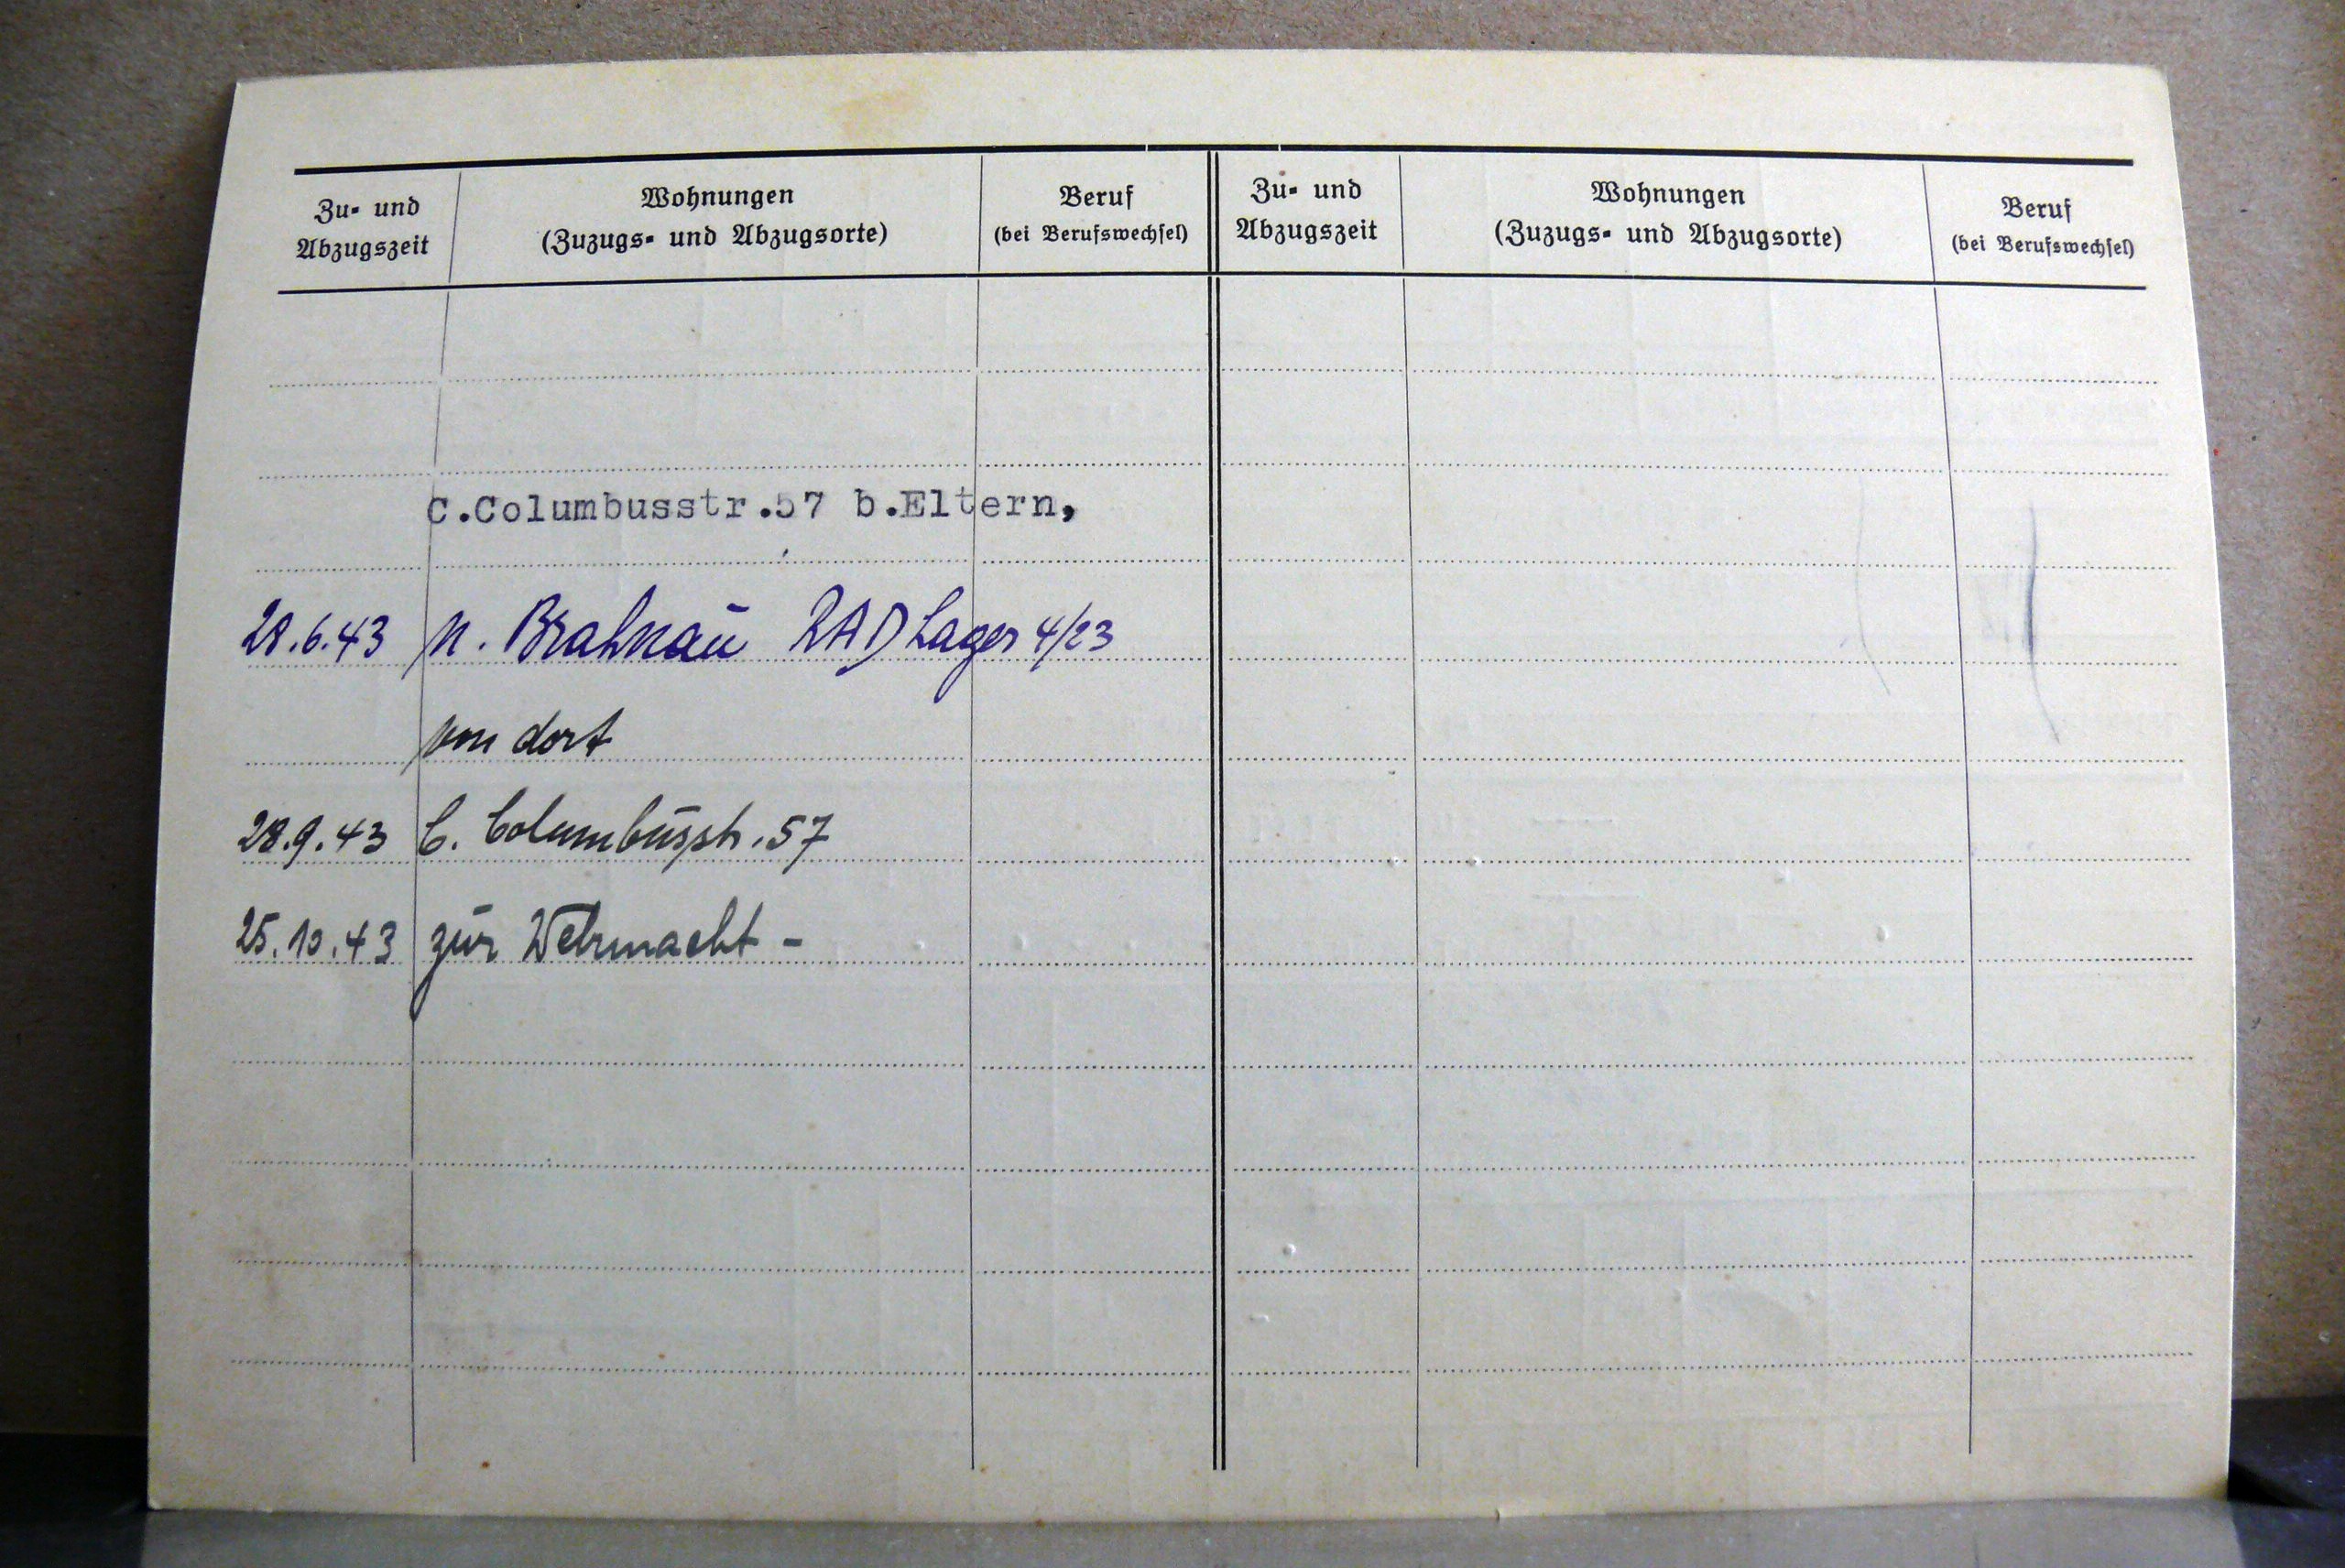 Zu- und Abzugszeit
Wohnungen (Zuzugs- und Abzugsorte)
Beruf (bei Berufswechsel)
Zu- und Abzugszeit
Wohnungen (Zuzugs- und Abzugsorte)
Beruf (bei Berufswechsel)
C.Columbusstr.57 b.Eltern,
28.6.43 n. Brahnau RAD Lager 4/23
von dort
28.9.43 C. Columbusstr. 57
25.10.43 zur Wehrmacht -